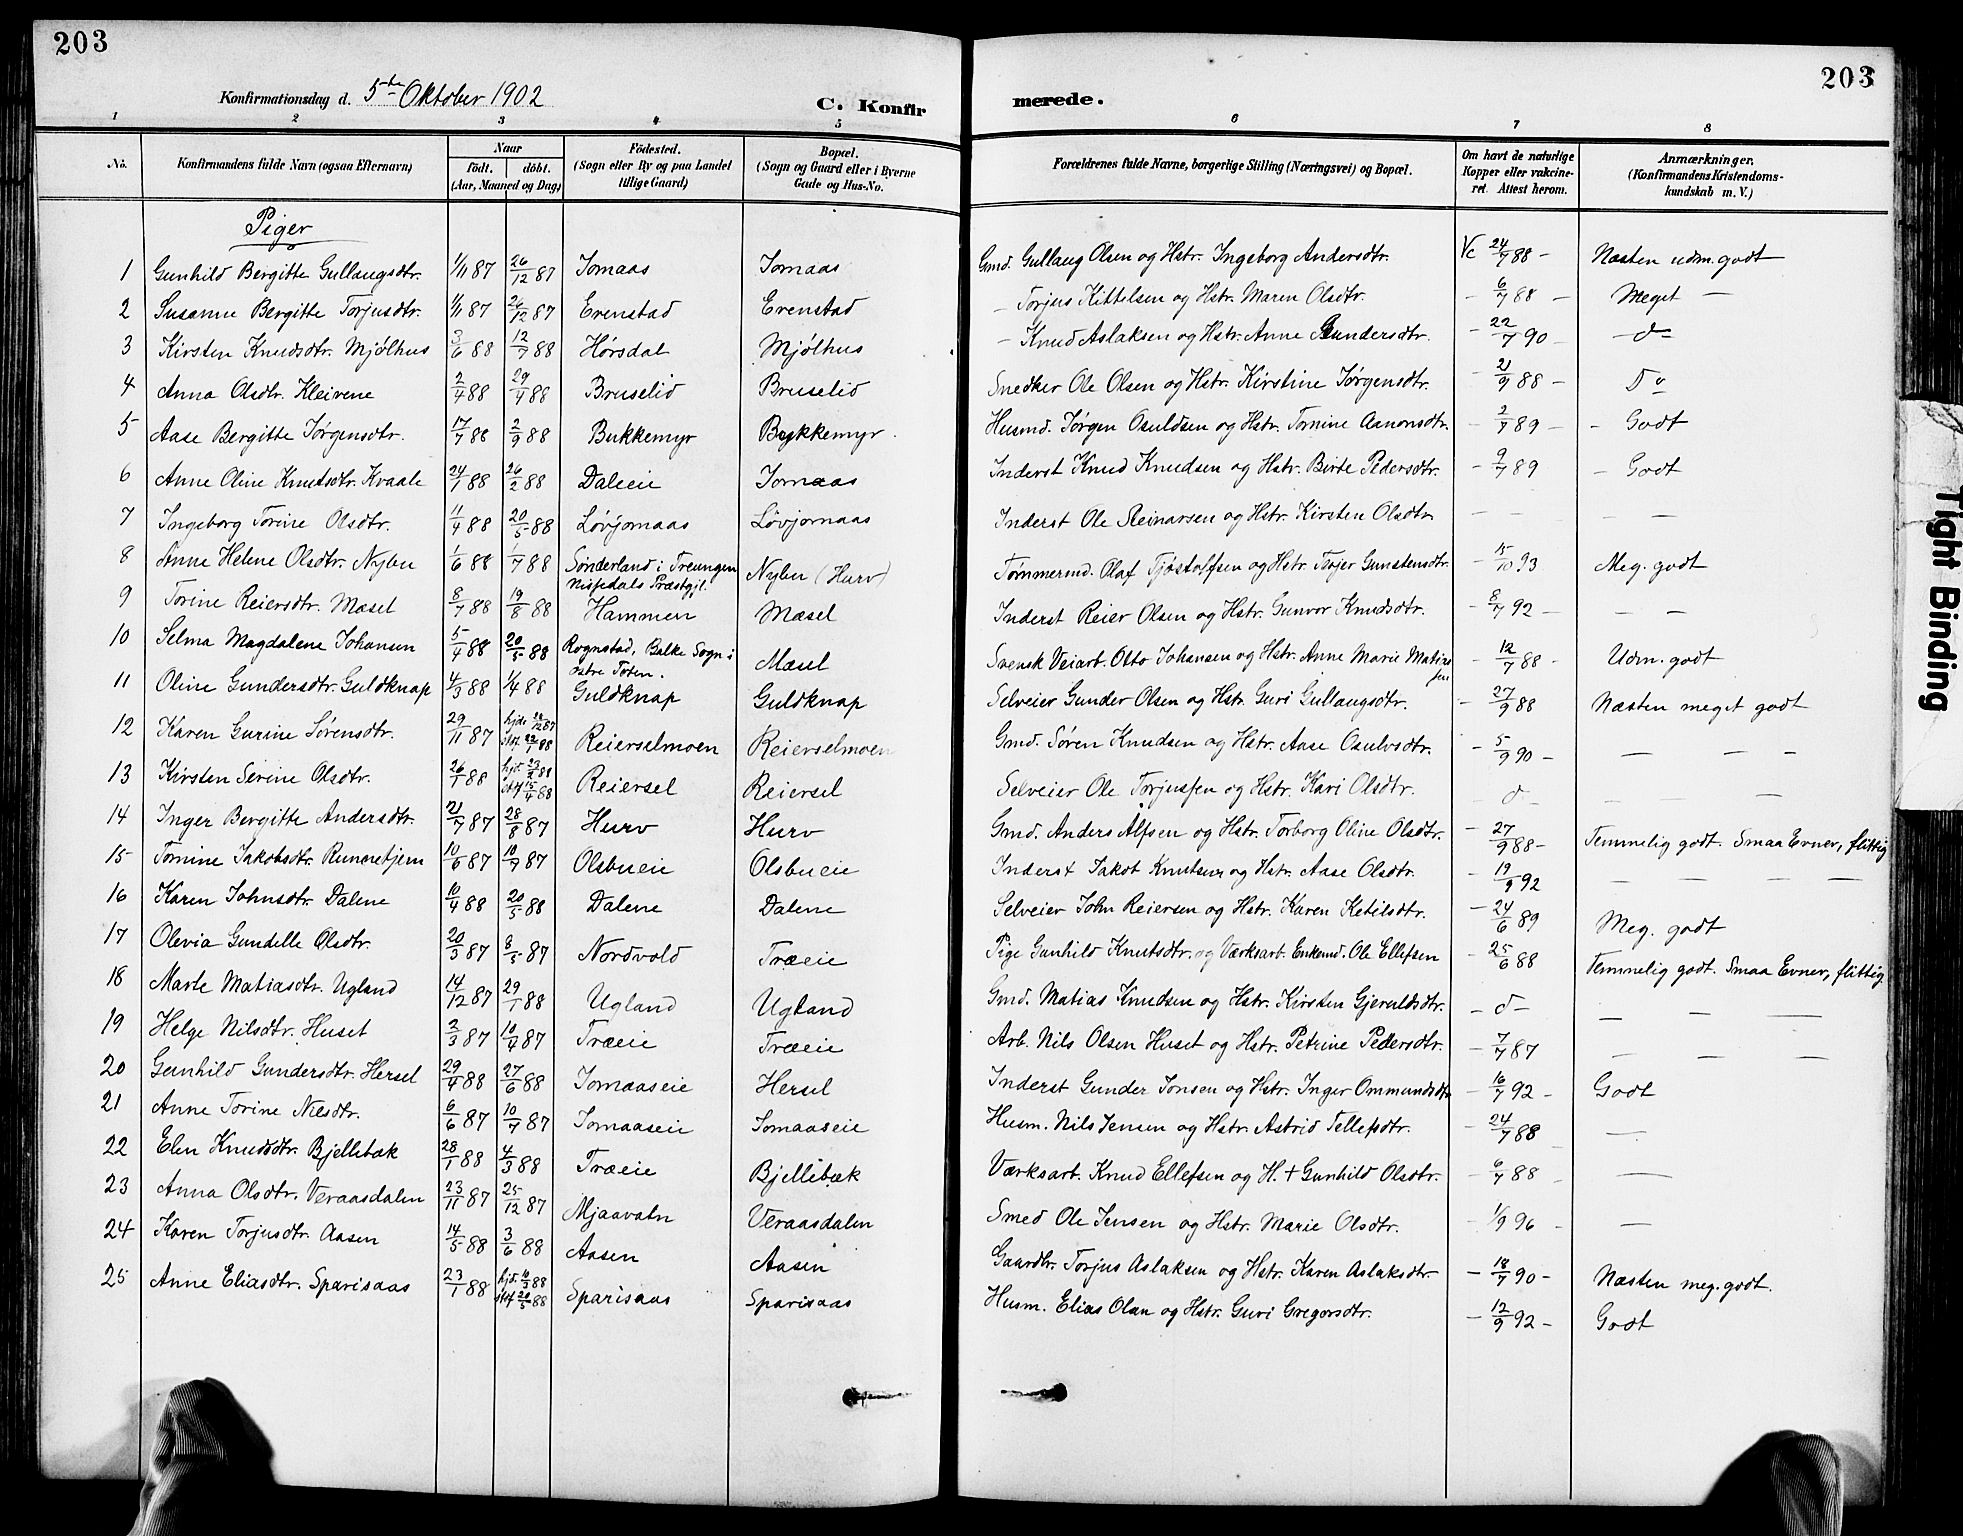 203
Konfirmationsdag d. 5te Oktober 1902
C. Konfir
1 2 3 4 5
No. Konfirmandens fulde Navn (ogsaa Efternavn) Naar födt. döbt. (Aar, Maaned og Dag) Födested. (Sogn eller By og paa Landet tillige Gaard) Bopæl. (Sogn og Gaard eller i Byerne Gade og Hus-No.
Piger
1 Gunhild Bergitte Gullaugsdtr. 1/11 87 26/12 87 Jomaas Jomaas
2 Susanne Bergitte Torjusdtr. 1/11 87 26/12 87 Evenstad Evenstad
3 Kirsten Knudsdtr. Mjølhus 3/6 88 12/7 88 Hørsdal Mjølhus
4 Anna Olsdtr. Kleivene 2/4 88 29/4 88 Bruselid Bruselid
5 Aase Bergitte Jørgensdtr. 17/7 88 2/9 88 Bukkemyr Bukkemyr.
6 Anne Oline Knutsdtr. Kvaale 24/1 88 26/2 88 Daleeie Jomaas
7 Ingeborg Torine Olsdtr. 11/4 88 20/5 88 Løvjomaas Løvjomaas
8 Anne Helene Olsdtr. Nybu 1/6 88 1/7 88 Sønderland i Treungen Nissedals Præstgjl. Nybu (Hurv)
9 Torine Reiersdtr. Mæsel 8/7 88 19/8 88 Hammen Mæsel
10 Selma Magdalene Johansen 5/4 88 20/5 88 Rognstad, Balke Sogn i østre Toten. Mæsel
11 Oline Gundersdtr. Guldknap 4/3 88 1/4 88 Guldknap Guldknap
12 Karen Gurine Sørensdtr. 29/11 87 hjdt 26/12 87 stf 22/1 88 Reierselmoen Reierselmoen
13 Kirsten Serine Olsdtr. 26/1 88 hjd. 23/2 88 stf 15/4 88 Reiersel Reiersel
14 Inger Bergitte Andersdtr. 21/7 87 28/8 87 Hurv Hurv
15 Tomine Jakobsdtr. Runnetjern 10/6 87 10/7 87 Olsbueie Olsbueie
16 Karen Johnsdtr. Dalene 10/4 88 20/5 88 Dalene Dalene
17 Olevia Gundelle Olsdtr. 20/3 87 8/5 87 Nordvold Træeie
18 Marte Matiasdtr. Ugland 14/12 87 29/1 88 Ugland Ugland
19 Helge Nilsdtr. Huset 2/3 87 10/4 87 Træeie Træeie
20 Gunhild Gundersdtr. Hersel 29/4 88 27/6 88 Jomaaseie Hersel
21 Anne Torine Nilsdtr. 6/6 87 10/7 87 Jomaaseie Jomaaseie
22 Elen Knudsdtr. Bjellebæk 28/1 88 4/3 88 Træeie Bjellebæk
23 Anna Olsdtr. Veraasdalen 23/11 87 25/12 87 Mjaavatn Veraasdalen
24 Karen Torjusdtr. Aasen 14/5 88 3/6 88 Aasen Aasen
25 Anne Eliasdtr. Sparisaas 23/1 88 hjd. 10/3 88 stf 20/5 88 Sparisaas Sparisaas
203
merede.
6 7 8
Forældrenes fulde Navne, borgerlige Stilling (Næringsvei) og Bopæl. Om havt de naturlige Kopper eller vakcineret. Attest herom. Anmærkninger. (Konfirmandens Kristendomskundskab m. V.)
Gmd. Gullaug Olsen og Hstr. Ingeborg Andersdtr. Vc 24/7 88 - Næsten udm. godt
- Torjus Kittelsen og Hstr. Maren Olsdtr. - 6/7 88 - Meget -
- Knud Aslaksen og Hstr. Anne Gundersdtr. - 22/7 90 - - d -
Snedker Ole Olsen og Hstr. Kirstine Jørgensdtr. - 21/9 88 - Do
Husmd. Jørgen Osuldsen og Hstr. Tomine Aanonsdtr. - 2/7 89 - - Godt
Inderst Knud Knudsen og Hstr. Birte Pedersdtr. - 9/7 89 - Godt
Inderst Ole Reinarsen og Hstr. Kirsten Olsdtr. - - - -
Tømmermd. Olaf Tjøstolfsen og Hstr. Torjer Gunstensdtr. - 15/10 93 Meg. godt
Inderst Reier Olsen og Hstr. Gunvor Knudsdtr. - 8/7 92 - - -
Svensk Veiarb. Otto Johansen og Hstr. Anne Marie Matiassen - 12/7 88 - Udm. godt
Selveier Gunder Olsen og Hstr. Guri Gullaugsdtr. - 27/9 88 Næsten meget godt
Gmd. Søren Knudsen og Hstr. Aase Osulvsdtr. - 5/9 90 - - - -
Selveier Ole Torjussen og Hstr. Kari Olsdtr. - d - - - -
Gmd. Anders Alfsen og Hstr. Torborg Oline Olsdtr. - 27/9 88 - Temmelig godt. Smaa Evner, flittig
Inderst Jakob Knutsen og Hstr. Aase Olsdtr. - 19/9 92 - - - -
Selveier John Reiersen og Hstr. Karen Ketilsdtr. - 24/6 89 Meg. godt
Pige Gunhild Knutsdtr. og Værksarb. Enkemd. Ole Ellefsen - 25/6 88 Temmelig godt. Smaa Evner, flittig.
Gmd. Matias Knudsen og Hstr. Kirsten Gjeruldsdtr. - d - - - -
Arb. Nils Olsen Huset og Hstr. Petrine Pedersdtr. - 7/7 87 - - -
Inderst Gunder Jonsen og Hstr. Inger Ommundsdtr - 16/7 92 - Godt
Husm. Nils Jensen og Hstr. Astrid Tellefsdtr. - 24/7 88 -
Værksarb. Knud Ellefsen og H. + Gunhild Olsdtr. - 6/7 88 - -
Smed Ole Jensen og Hstr. Marie Olsdtr. - 1/9 96 - -
Gaardbr. Torjus Aslaksen og Hstr. Karen Aslaksdtr. - 18/7 90 - Næsten meg. godt.
Husm. Elias Olsen og Hstr. Guri Gregorsdtr. - 12/9 92 - Godt
Tight Binding